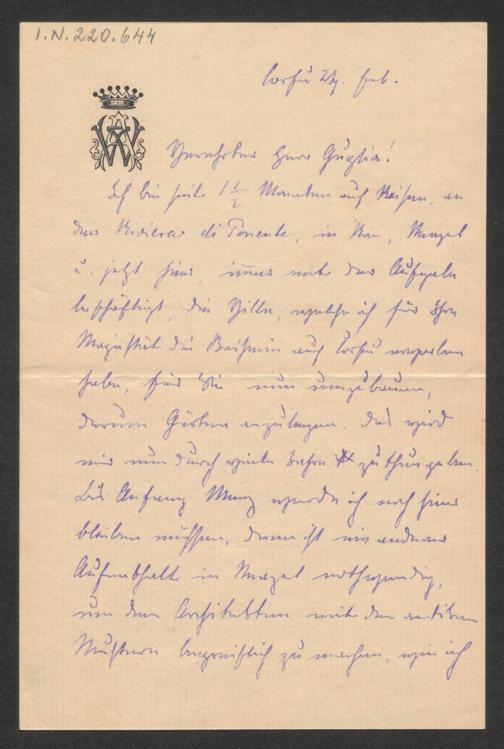 I.N. 220.644
Corfu 24. Feb.
Verehrter Herr Guglia!
Ich bin seit 1 1/2 Monaten auf Reisen, an
der Riviera di Ponente, in Rom, Neapel
u. jetzt hier, immer mit der Aufgabe
beschäftigt, die Villa, welche ich für Ihre
Majestät die Kaiserin auf Corfu erworben
habe, für Sie nun umzubauen,
darum Gärten anzulegen. Das wird
mir nun durch viele Jahre zu thun geben.
Bis Anfang März werde ich noch hier
bleiben müssen, dann ist ein anderer
Aufenthalt in Neapel nothwendig,
um den Architekten mit den antiken
Mustern begreiflich zu machen, wie ich